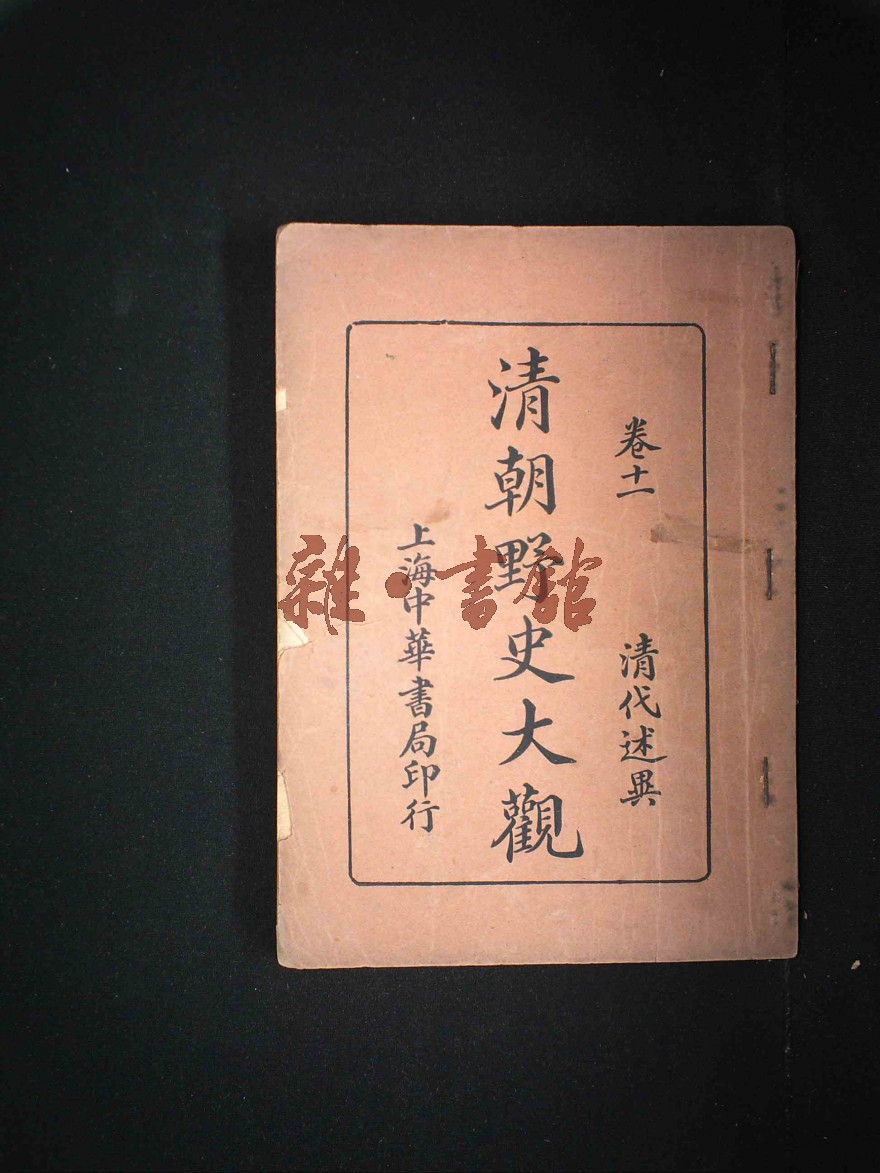 卷十一 清代述異
清朝野史大觀
上海中華書局印行
雜·書館